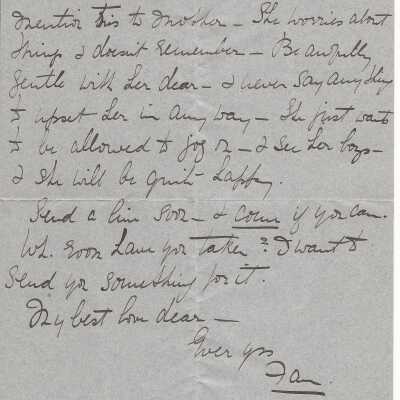 mention this to Mother - She worries about
things & doesn't remember - Be awfully
gentle with her dear - & never say anything
to upset her in any way - She just wants
to be allowed to jog on - & see her boys -
& she will be quite happy.
Send a line soon - & come if you can.
Wh. room have you taken? I want to
send you something for it.
My best love dear -
Ever yrs
Fan.